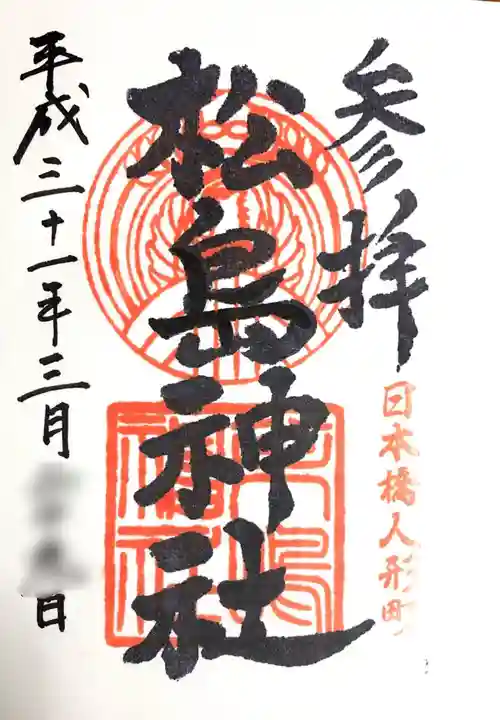 参拝
日本橋人形町
松島神社
平成三十一年三月
日